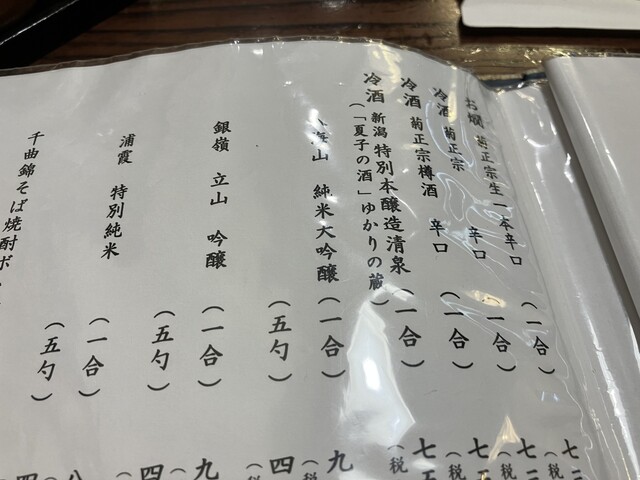 お燗 菊正宗生一本辛口 (一合) 七二
冷酒 菊正宗 辛口 (一合) 七二 (税
冷酒 菊正宗樽酒 辛口 (一合) 七 (税
冷酒 新潟 特別本醸造清泉 (一合) 七五 (税
(「夏子の酒」ゆかりの蔵)
海山 純米大吟醸 (一合) 九 (税
(五勺) 四 (税
銀嶺 立山 吟醸 (一合) 九 (
(五勺) 四 (
浦霞 特別純米 (一合) 八
(五勺) 四
千曲錦そば焼酎ボ